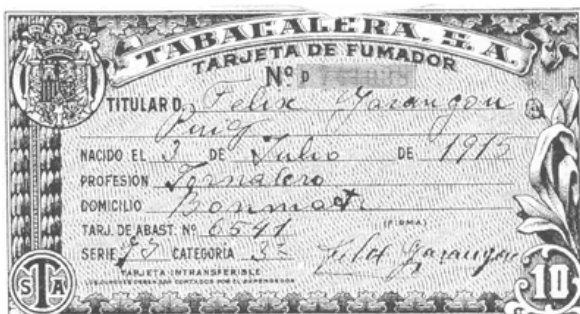 TABACALERA, S. A.
TARJETA DE FUMADOR
Nº D
TITULAR D. Felix Garangou
Puig
NACIDO EL 3 DE Julio DE 1913
PROFESIÓN Jornalero
DOMICILIO Bonmatí
TARJ. DE ABAST. Nº 6541 (FIRMA)
SERIE CATEGORÍA 3ª Felix Garangou
TARJETA INTRANSFERIBLE
S T A 10